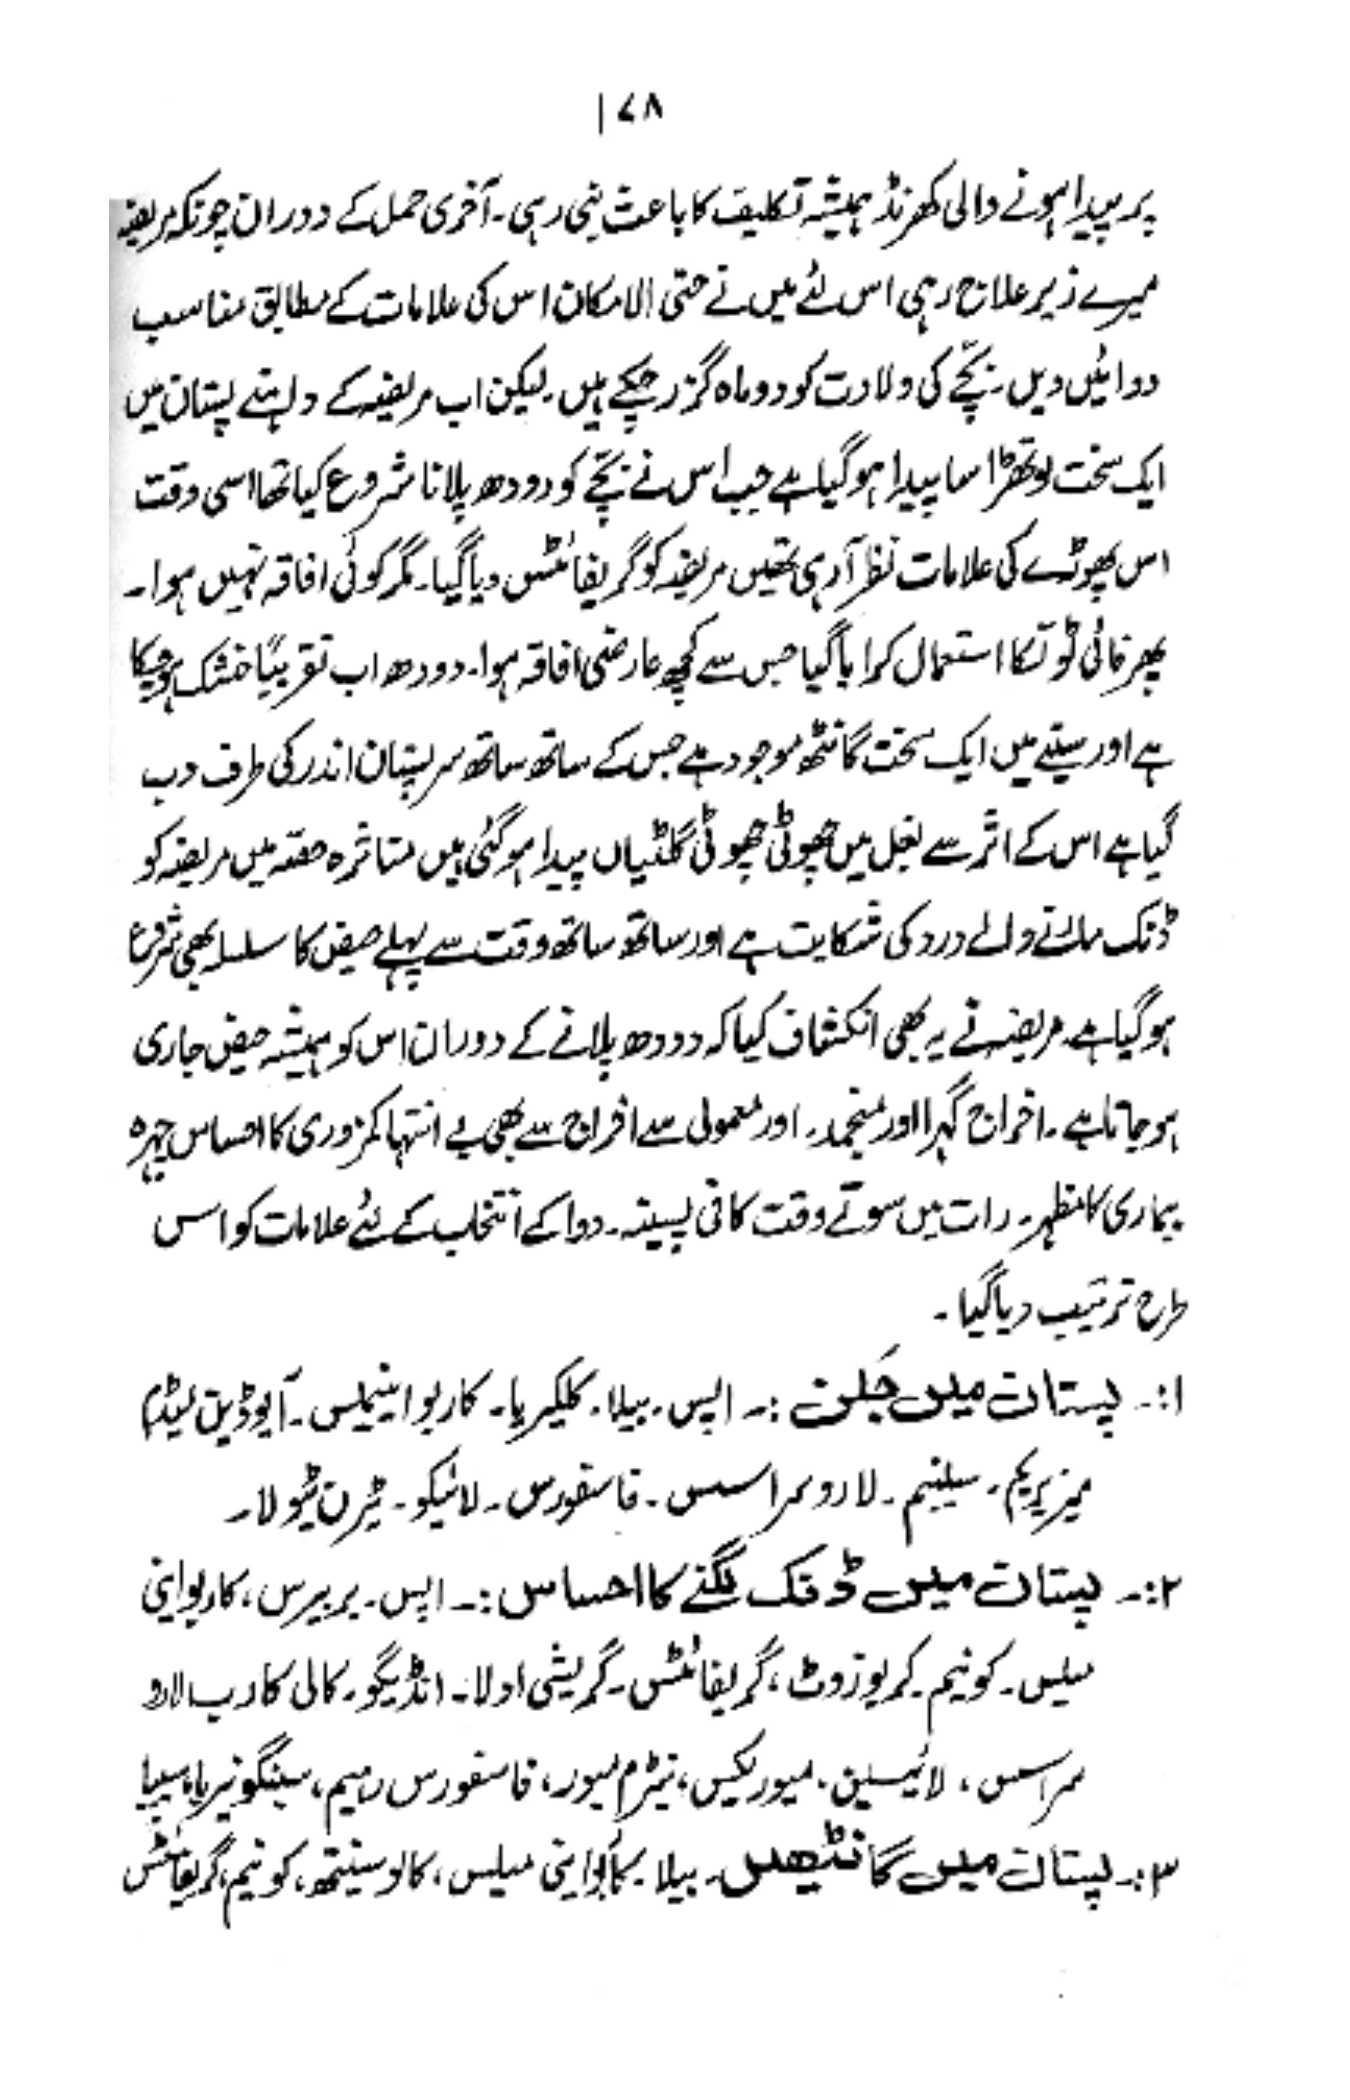 ۱۷۸
پر پیدا ہونے والی کھرنڈ ہمیشہ تکلیف کا باعث بنی رہی۔ آخری حمل کے دوران چونکہ مریضہ
میرے زیر علاج رہی اس لئے میں نے حتی الامکان اس کی علامات کے مطابق مناسب
دوائیں دیں۔ بچّے کی ولادت کو دو ماہ گزر چکے ہیں۔ لیکن اب مریضہ کے داہنے پستان میں
ایک سخت لوتھڑا سا پیدا ہوگیا ہے جب اس نے بچّے کو دودھ پلانا شروع کیا تھا اسی وقت
اس پھوڑے کی علامات نظر آرہی تھیں مریضہ کو گریفائٹس دیا گیا۔ مگر کوئی افاقہ نہیں ہوا۔
پھر فائی ٹولکا استعمال کرایا گیا جس سے کچھ عارضی افاقہ ہوا۔ دودھ اب تقریباً خشک ہوچکا
ہے اور سینے میں ایک سخت گانٹھ موجود ہے جس کے ساتھ ساتھ سر پستان اندر کی طرف دب
گیا ہے اس کے اثر سے بغل میں چھوٹی چھوٹی گلٹیاں پیدا ہوگئی ہیں متاثرہ حصّہ میں مریضہ کو
ڈنک مارنے والے درد کی شکایت ہے اور ساتھ ساتھ وقت سے پہلے حیض کا سلسلہ بھی شروع
ہوگیا ہے۔ مریضہ نے یہ بھی انکشاف کیا کہ دودھ پلانے کے دوران اس کو ہمیشہ حیض جاری
ہو جاتا ہے۔ اخراج گہرا اور منجمد۔ اور معمولی سے اخراج سے بھی بے انتہا کمزوری کا احساس چہرہ
بیماری کا مظہر۔ رات میں سوتے وقت کافی پسینہ۔ دوا کے انتخاب کے لئے علامات کو اس
طرح ترتیب دیا گیا۔
۱:۔ پستان میں جَلن :۔ اپس۔ بیلا۔ کلکیریا۔ کاربو اینیملس۔ آیوڈین لیڈم
میزیریم۔ سیلینم۔ لارو سراسس۔ فاسفورس۔ لائیکو۔ ٹیرن ٹیولا۔
۲:۔ پستان میں ڈنک لگنے کا احساس :۔ اپس۔ بربیرس، کاربو اینی
میلس۔ کونیم۔ کریوزوٹ، گریفائٹس۔ گریشی اولا۔ انڈیگو۔ کالی کارب لارو
سراسس، لائیسین۔ میوریکس، نیٹرم میور، فاسفورس رہیم، سینگونیریا، سیپیا
۳:۔ پستان میں گانٹھیں۔ بیلا۔ کاربو اینی میلس، کالوسینتھ، کونیم، گریفائٹس